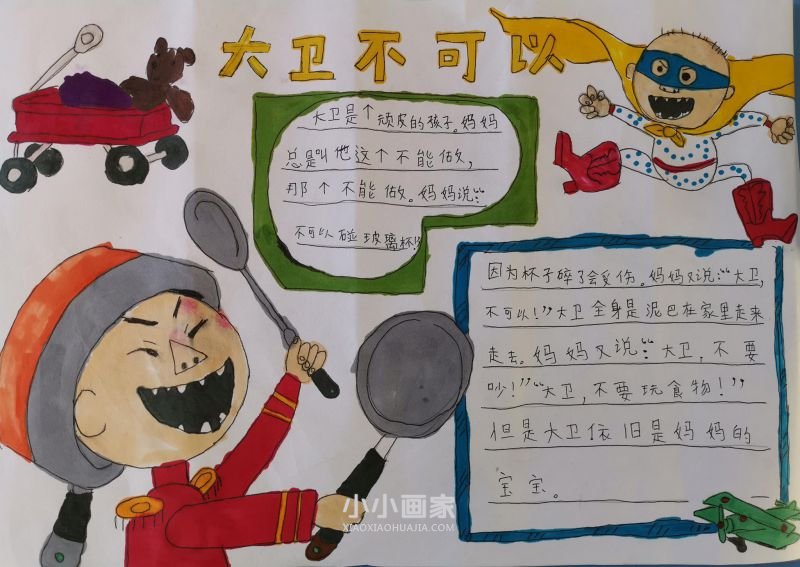 大卫不可以
大卫是个顽皮的孩子。妈妈
总是叫他这个不能做，
那个不能做。妈妈说：“
不可以碰玻璃杯！”
因为杯子碎了会受伤。妈妈又说：“大卫，
不可以！”大卫全身是泥巴在家里走来
走去。妈妈又说：“大卫，不要
吵！”“大卫，不要玩食物！”
但是大卫依旧是妈妈的
宝宝。
小小画家
XIAOXIAOHUAJIA.COM